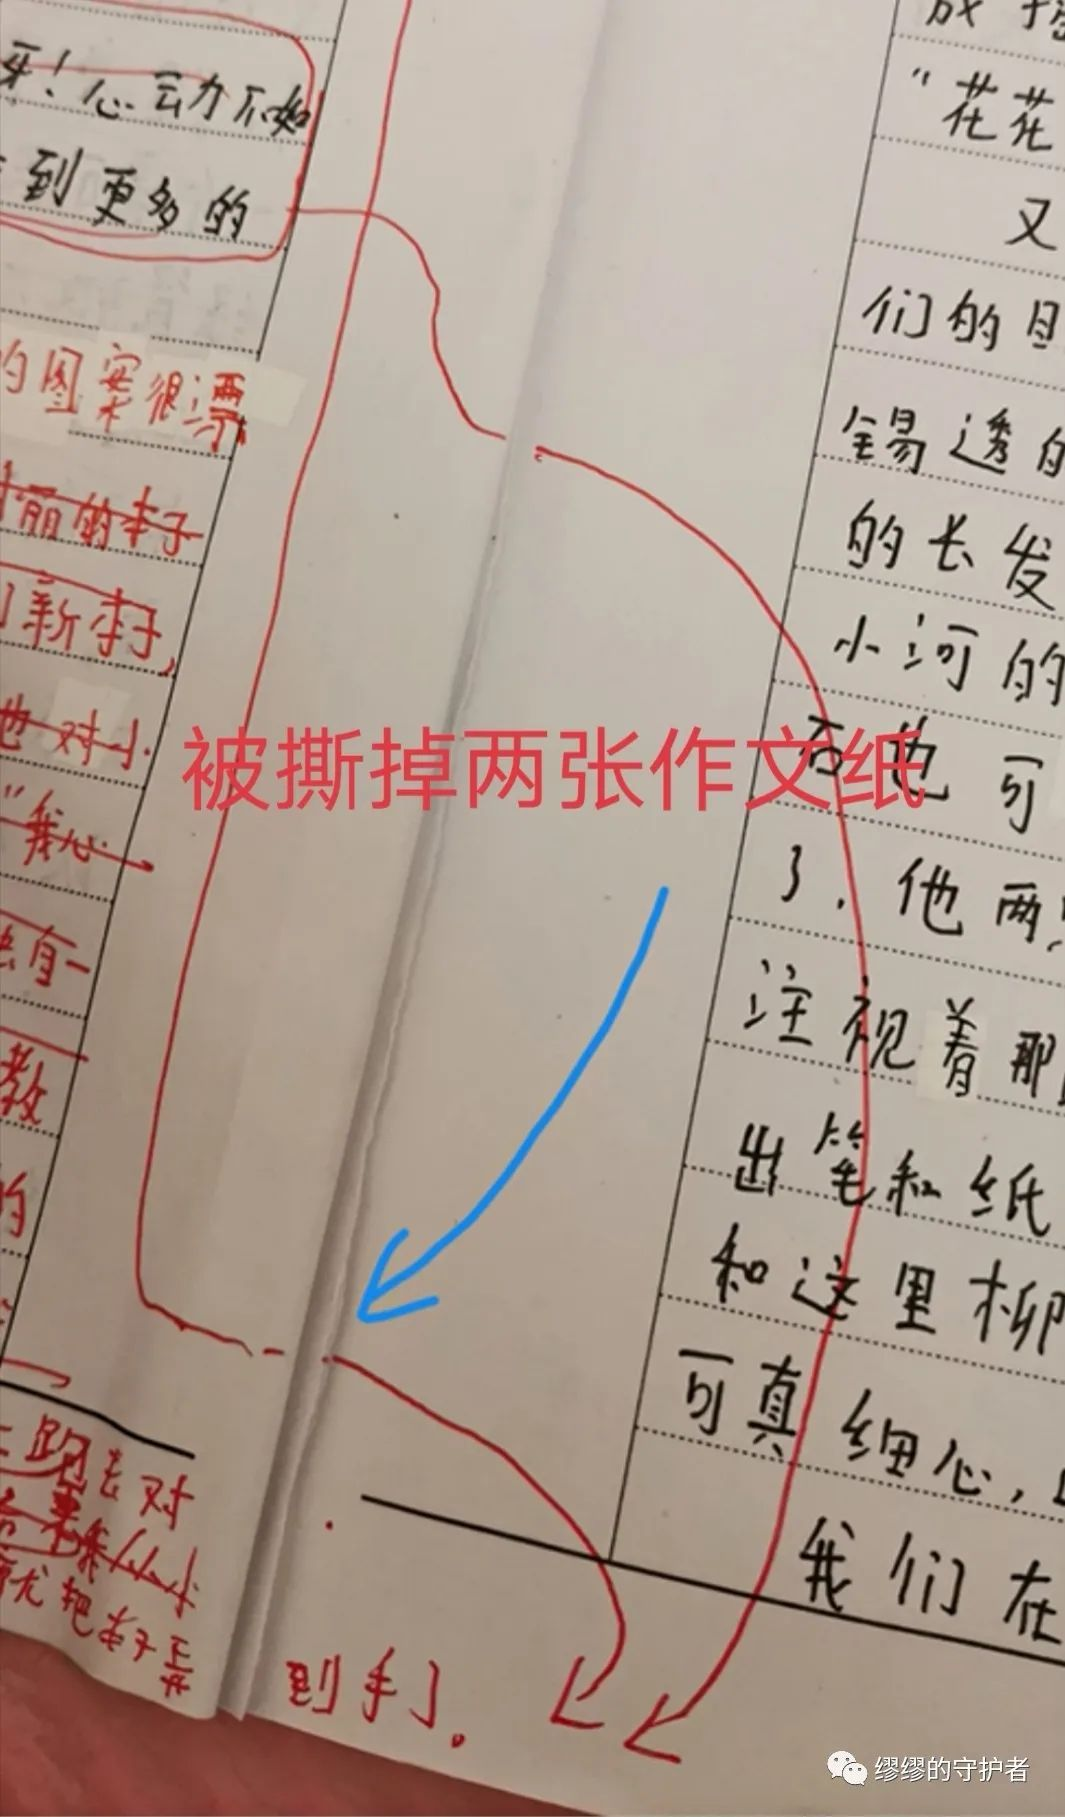 牙!心动不如
到更多的
的图案很漂
丽的本子
新本子,
他对小
"我心
有一
教
的
跑去对
就把本子弄
到手了。
"花花
又
们的目
锡透的
的长发
小河的
石也可
了,他两
注视着那
出笔和纸
和这里柳
可真细心,
我们在
被撕掉两张作文纸
缪缪的守护者